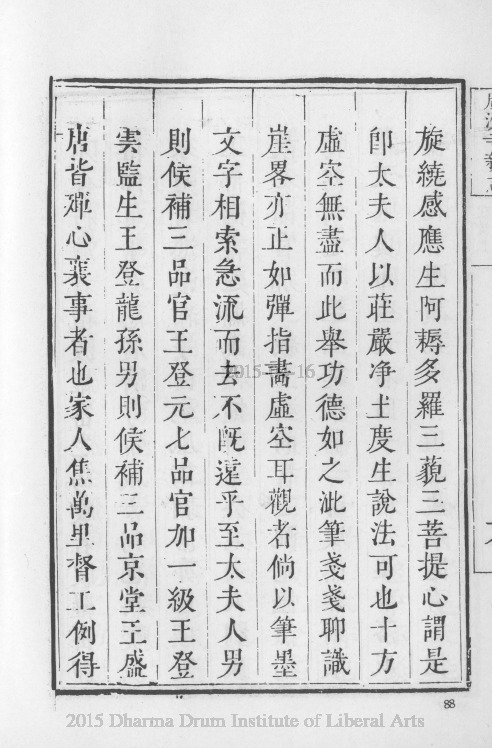 旋繞感應生阿耨多羅三藐三菩提心謂是
卽太夫人以莊嚴净土度生說法可也十方
虛空無盡而此舉功德如之泚筆戔戔聊識
崖畧亦止如彈指畵虛空耳觀者倘以筆墨
文字相索急流而去不旣遠乎至太夫人男
則候補三品官王登元七品官加一級王登
雲監生王登龍孫男則候補三品京堂王盛
唐皆殫心襄事者也家人焦萬里督工例得
88
2015 Dharma Drum Institute of Liberal Arts